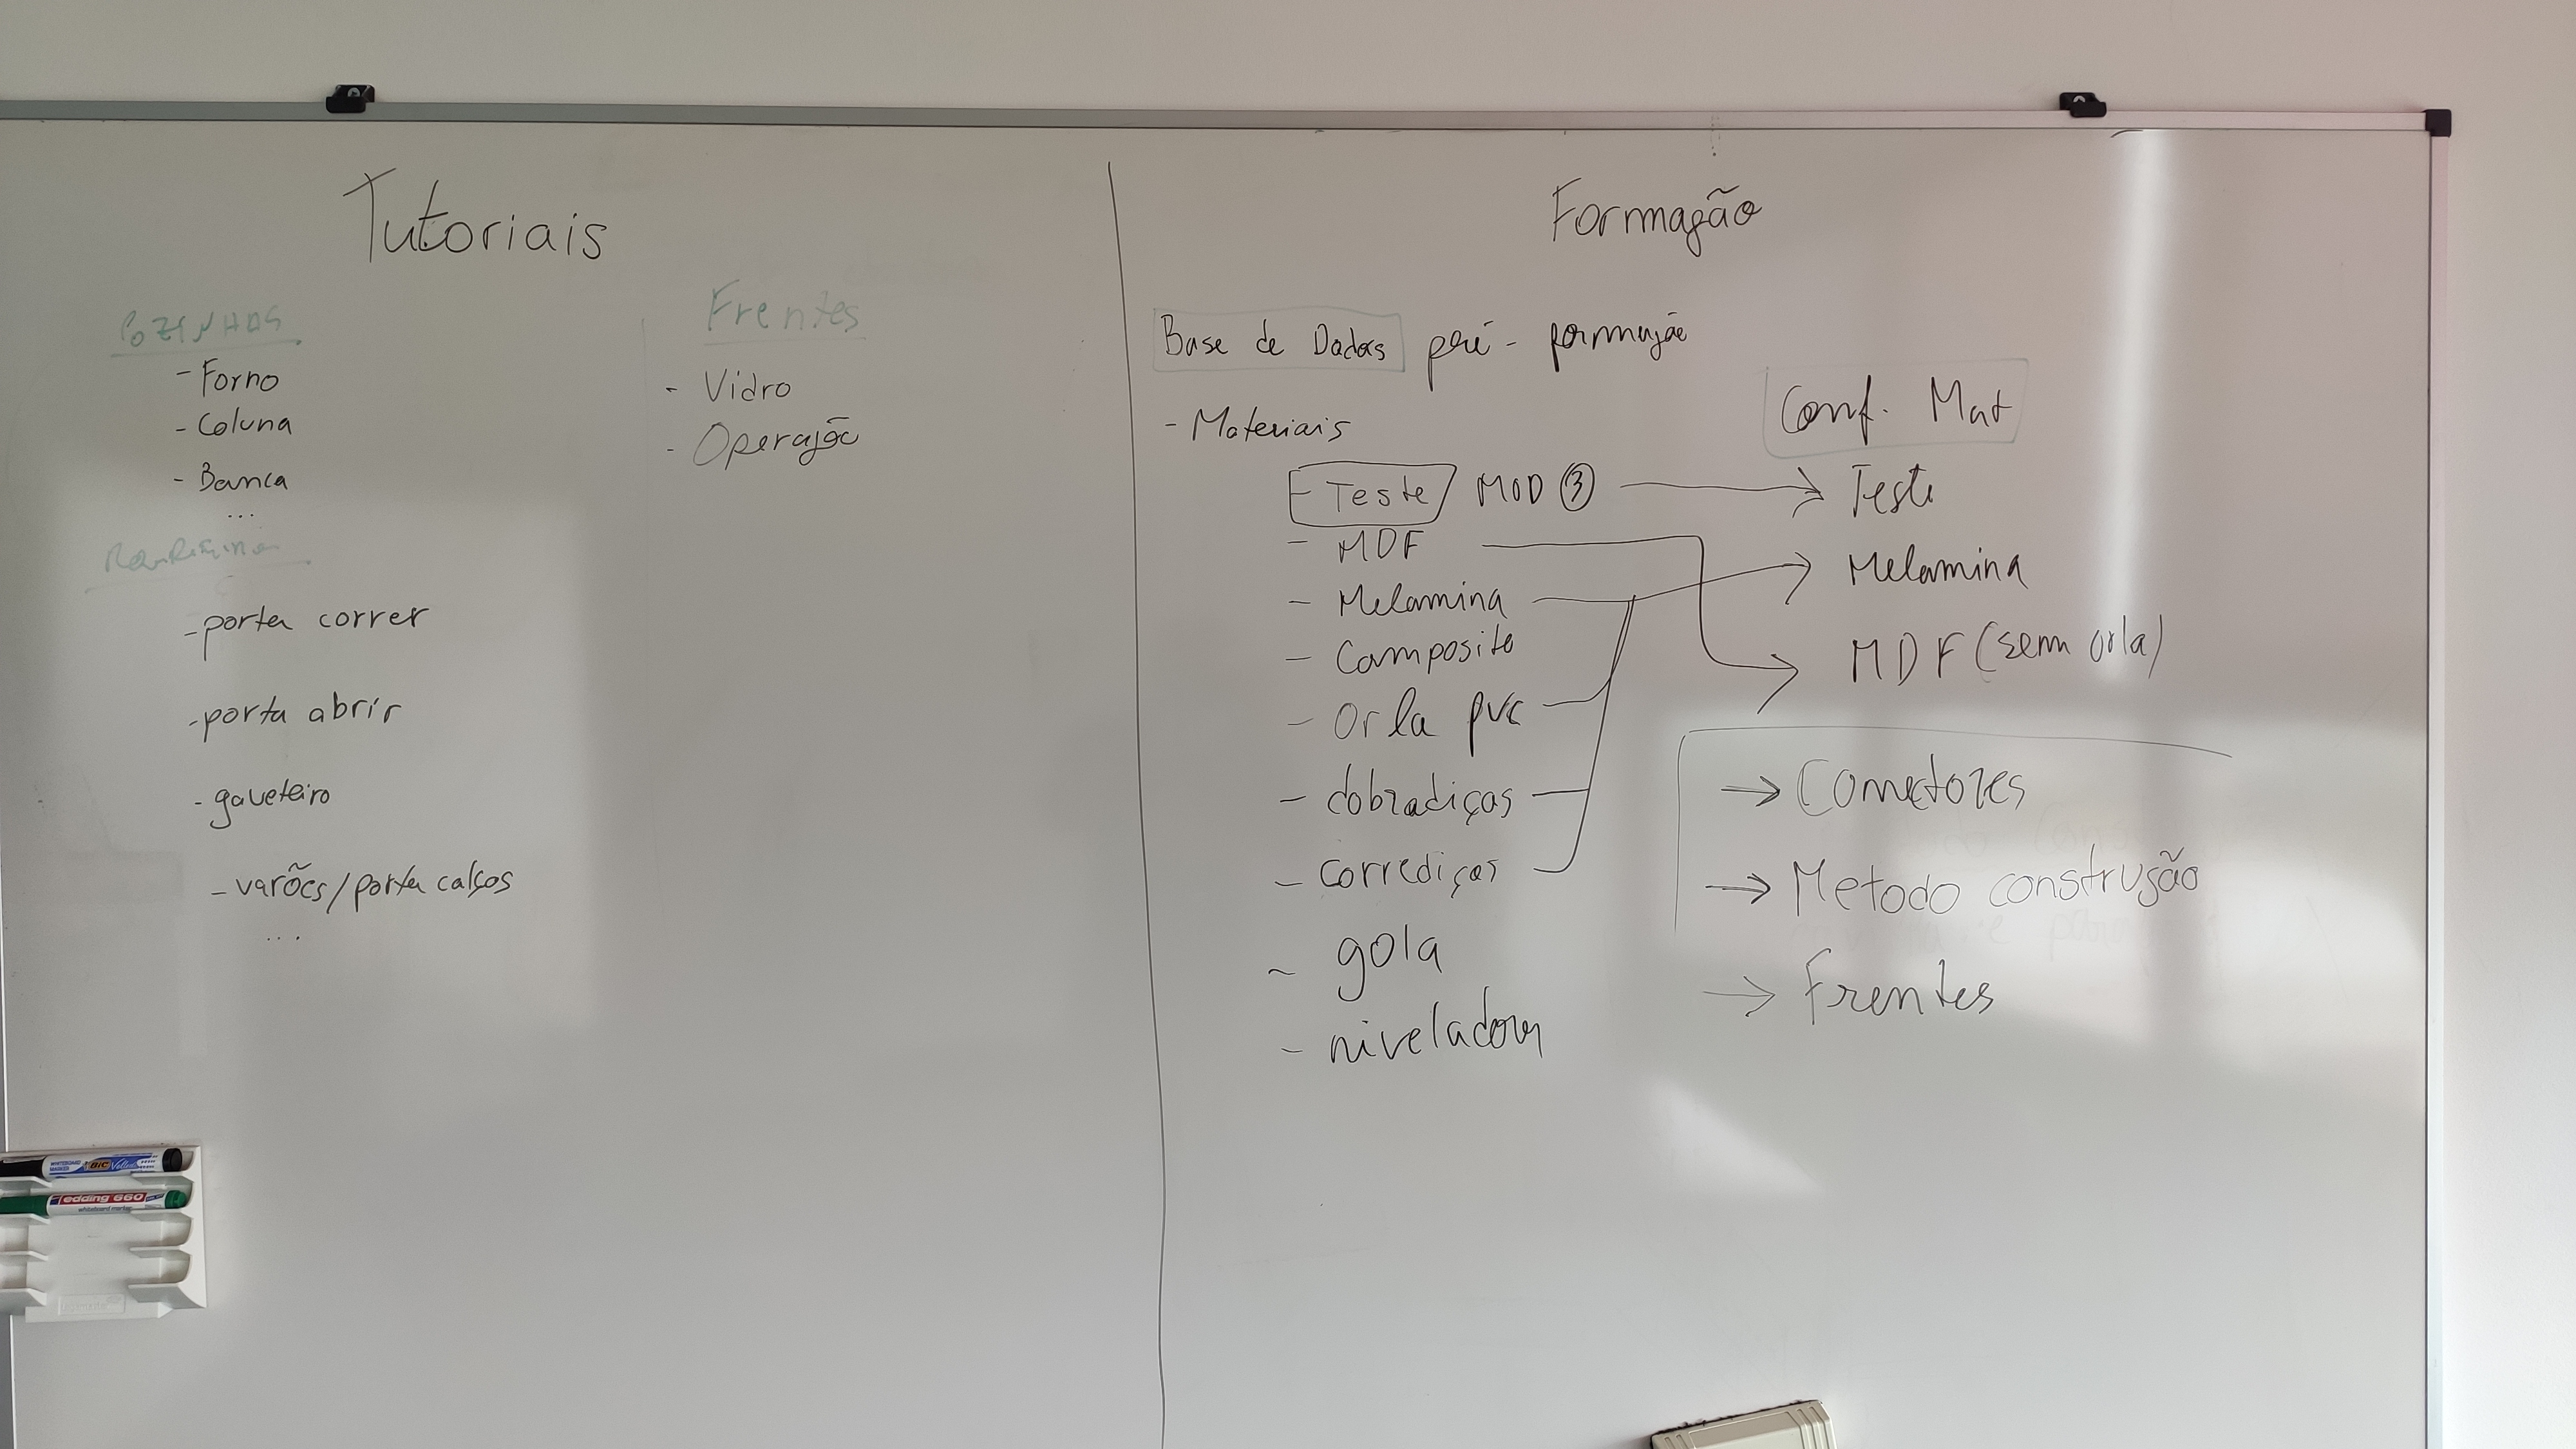 Tutoriais
COZINHAS
- Forno
- Coluna
- Banca
...
- porta correr
- porta abrir
- gaveteiro
- varões/porta calços
...
Frentes
- Vidro
- Operação
Formação
Base de Dados pré-formação
- Materiais
- Teste MOD 3
- MDF
- Melamina
- Composito
- Orla pvc
- dobradiças
- corrediças
~ gola
- niveladores
Conf. Mat
Teste
Melamina
MDF (sem orla)
→ Conectores
→ Metodo construção
→ Frentes
BIC
edding 660
whiteboard marker